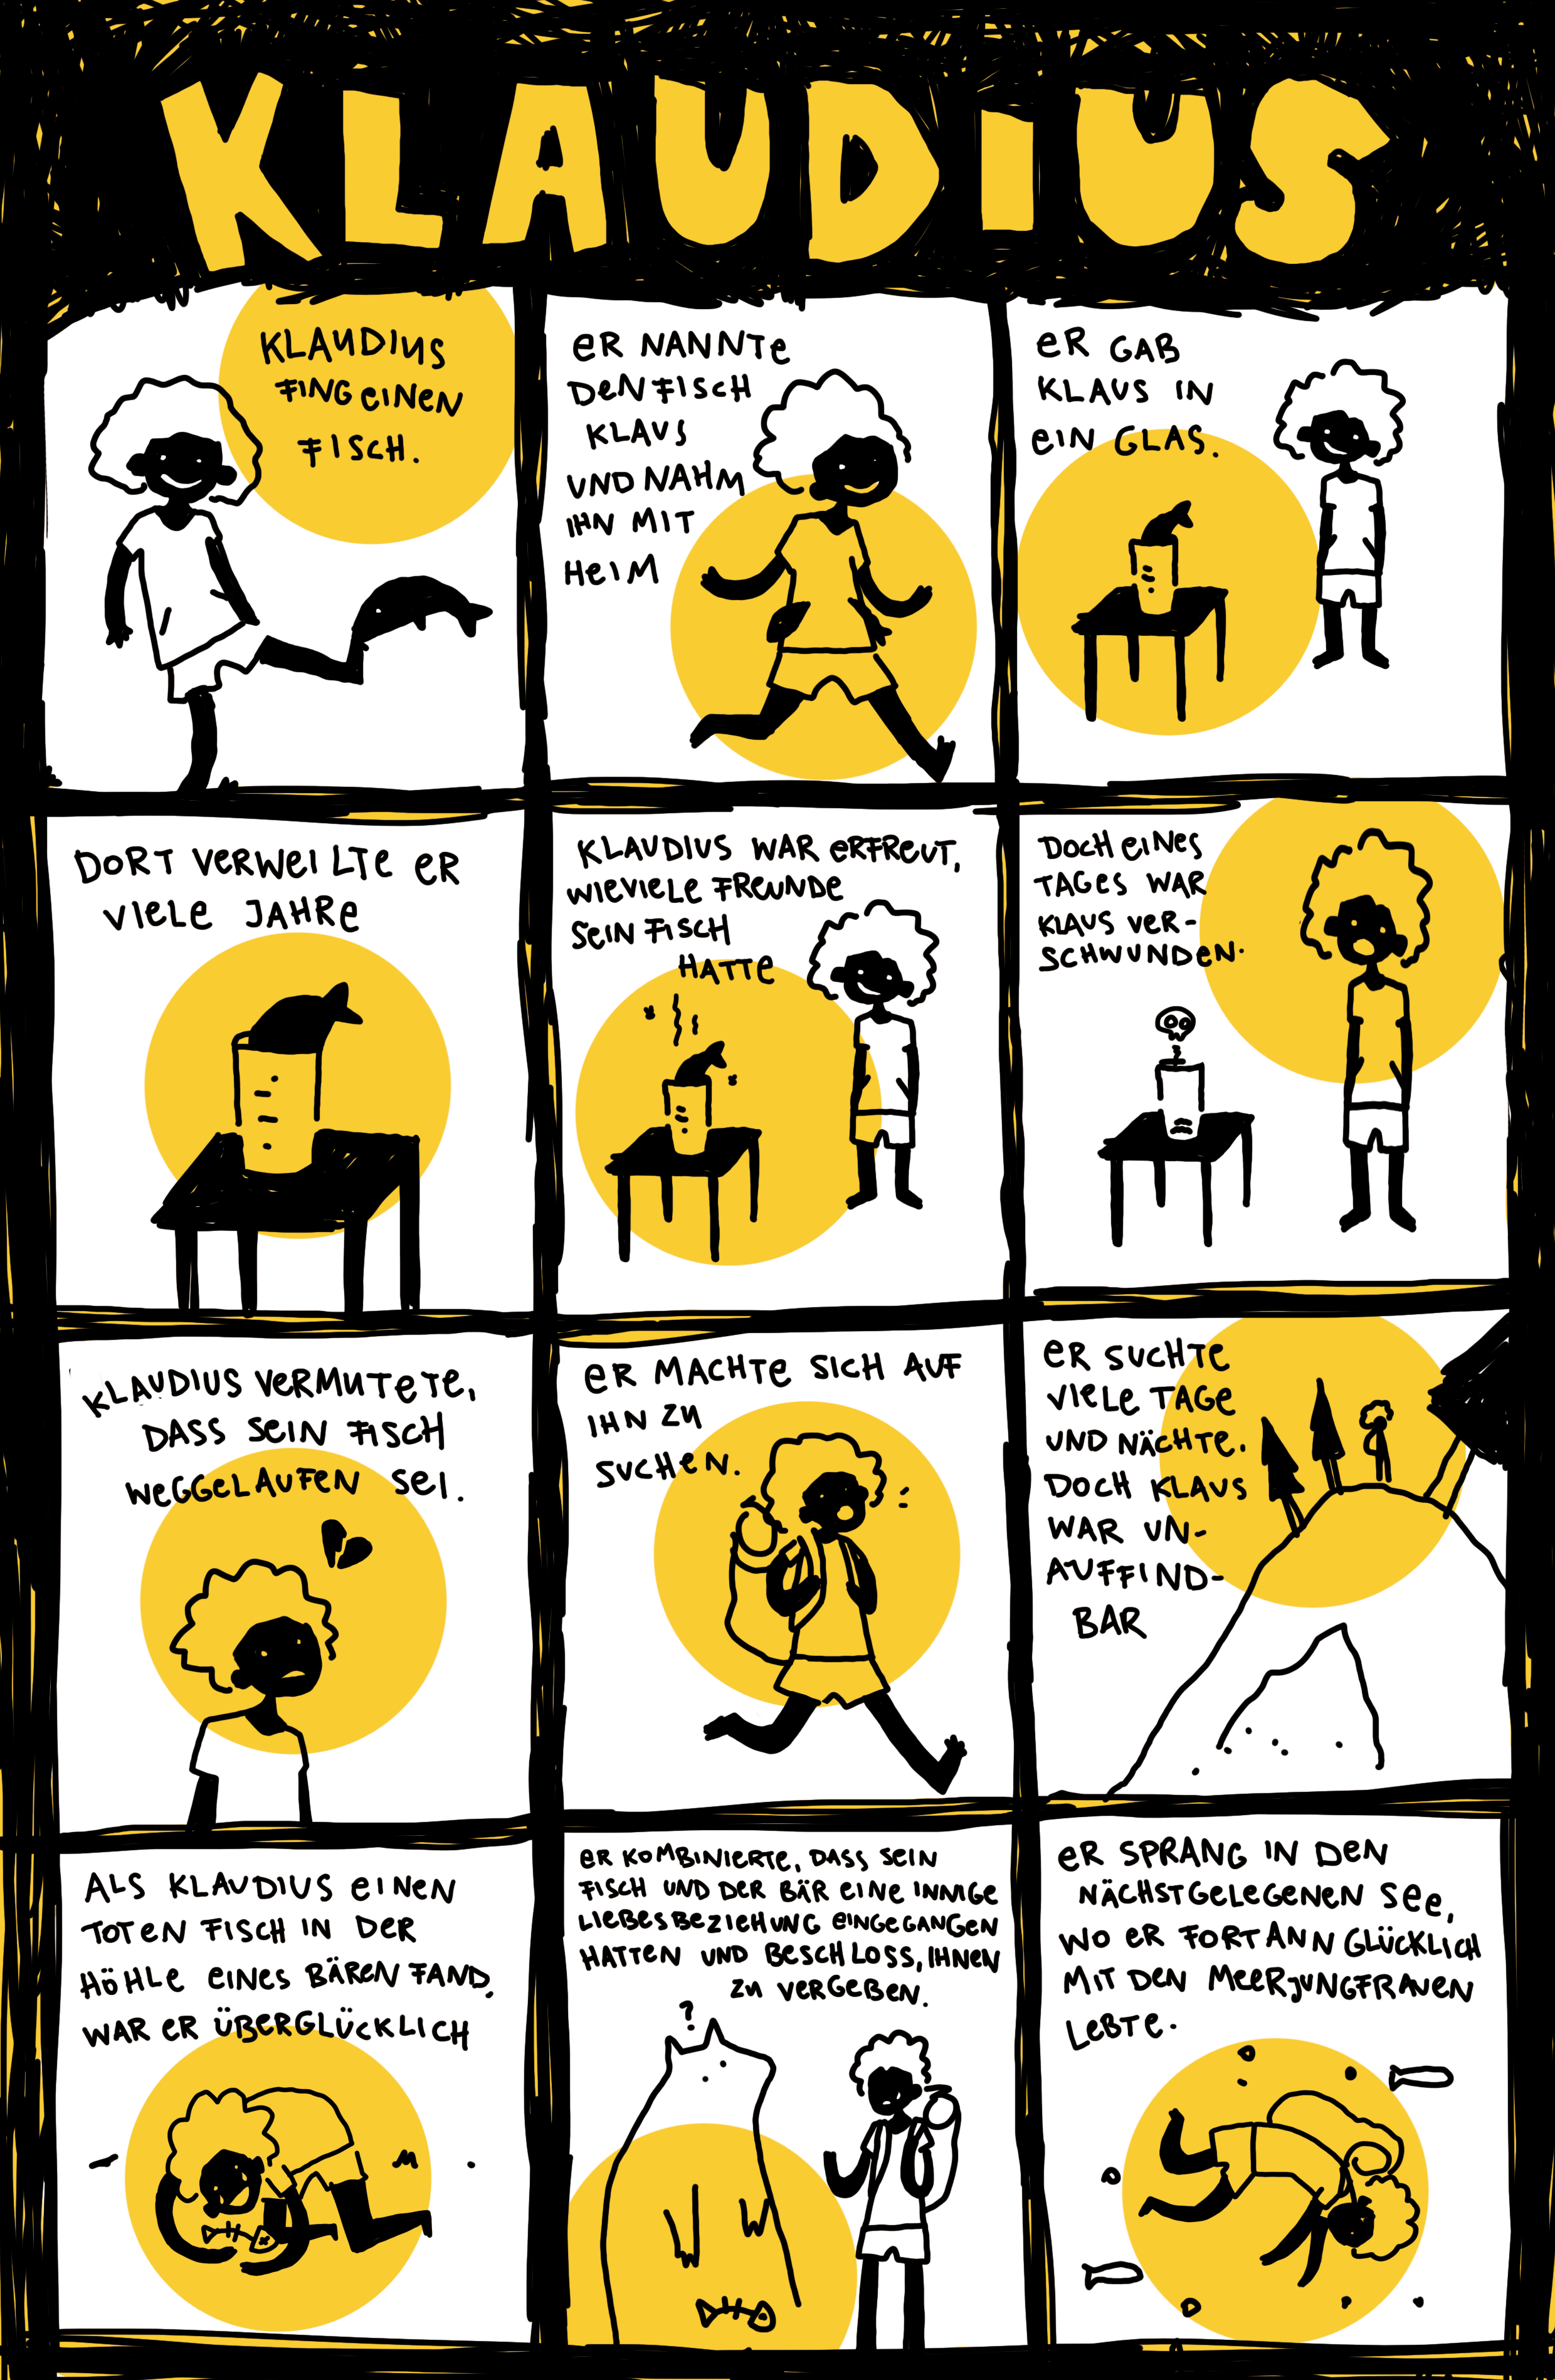 KLAUDIUS
KLAUDIUS
FING EINEN
FISCH.
ER NANNTE
DEN FISCH
KLAUS
UND NAHM
IHN MIT
HEIM
ER GAB
KLAUS IN
EIN GLAS.
DORT VERWEILTE ER
VIELE JAHRE
KLAUDIUS WAR ERFREUT,
WIEVIELE FREUNDE
SEIN FISCH
HATTE
DOCH EINES
TAGES WAR
KLAUS VER-
SCHWUNDEN.
KLAUDIUS VERMUTETE,
DASS SEIN FISCH
WEGGELAUFEN SEI.
ER MACHTE SICH AUF
IHN ZU
SUCHEN.
ER SUCHTE
VIELE TAGE
UND NÄCHTE.
DOCH KLAUS
WAR UN-
AUFFIND-
BAR
ALS KLAUDIUS EINEN
TOTEN FISCH IN DER
HÖHLE EINES BÄREN FAND,
WAR ER ÜBERGLÜCKLICH
ER KOMBINIERTE, DASS SEIN
FISCH UND DER BÄR EINE INNIGE
LIEBESBEZIEHUNG EINGEGANGEN
HATTEN UND BESCHLOSS, IHNEN
ZU VERGEBEN.
?
ER SPRANG IN DEN
NÄCHSTGELEGENEN SEE,
WO ER FORTANN GLÜCKLICH
MIT DEN MEERJUNGFRAUEN
LEBTE.